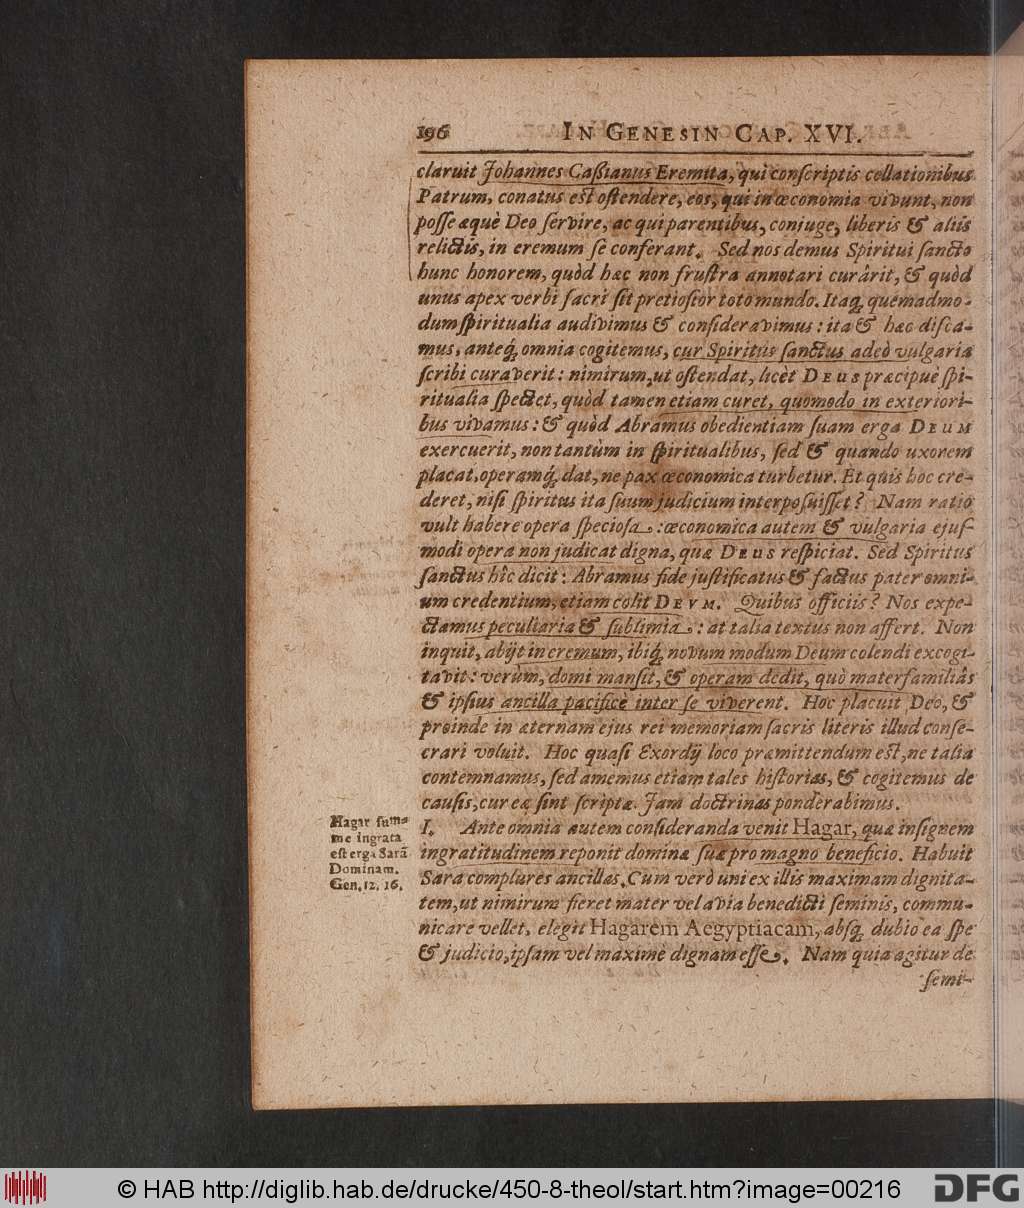 196 IN GENESIN CAP. XVI.
claruit Johannes Caßianus Eremita, qui conſcriptis collationibus
Patrum, conatus eſt oſtendere, eos, qui in œconomia vivunt, non
poſſe æquè Deo ſervire, ac qui parentibus, conjuge, liberis & aliis
relictis, in eremum ſe conferant. Sed nos demus Spiritui ſancto
hunc honorem, quòd hæc non fruſtra annotari curârit, & quòd
unus apex verbi ſacri ſit pretioſior toto mundo. Itaq; quemadmo-
dum ſpiritualia audivimus & conſideravimus: ita & hæc diſca-
mus, anteq́; omnia cogitemus, cur Spiritus ſanctus adeò vulgaria
ſcribi curaverit: nimirum, ut oſtendat, licèt DEUS præcipuè ſpi-
ritualia ſpectet, quòd tamen etiam curet, quomodo in exteriori-
bus vivamus: & quòd Abramus obedientiam ſuam erga DEUM
exercuerit, non tantùm in ſpiritualibus, ſed & quando uxorem
placat, operamq́; dat, ne pax œconomica turbetur. Et quis hoc cre-
deret, niſi ſpiritus ita ſuum judicium interpoſuiſſet? Nam ratio
vult habere opera ſpecioſa: œconomica autem & vulgaria ejuſ-
modi opera non judicat digna, quæ DEUS reſpiciat. Sed Spiritus
ſanctus hîc dicit: Abramus fide juſtificatus & factus pater omni-
um credentium, etiam colit DEVM. Quibus officiis? Nos expe-
ctamus peculiaria & ſublimia: at talia textus non affert. Non
inquit, abijt in eremum, ibiq́; novum modum Deum colendi excogi-
tavit: verùm, domi manſit, & operam dedit, quò materfamiliâs
& ipſius ancilla pacificè inter ſe viverent. Hoc placuit Deo, &
proinde in æternam ejus rei memoriam ſacris literis illud conſe-
crari voluit. Hoc quaſi Exordij loco præmittendum eſt, ne talia
contemnamus, ſed amemus etiam tales hiſtorias, & cogitemus de
cauſis, cur eæ ſint ſcriptæ. Jam doctrinas ponderabimus.
Hagar ſum-
me ingrata
eſt erga Sarã
Dominam.
Gen. 12. 16.
I. Ante omnia autem conſideranda venit Hagar, quæ inſignem
ingratitudinem reponit dominæ ſuæ pro magno beneficio. Habuit
Sara complures ancillas. Cum verò uni ex illis maximam dignita-
tem, ut nimirum fieret mater vel avia benedicti ſeminis, commu-
nicare vellet, elegit Hagarem Aegyptiacam, abſq́; dubio ea ſpe
& judicio, ipſam vel maximè dignam eſſe. Nam quia agitur de
ſemi-
© HAB http://diglib.hab.de/drucke/450-8-theol/start.htm?image=00216
DFG